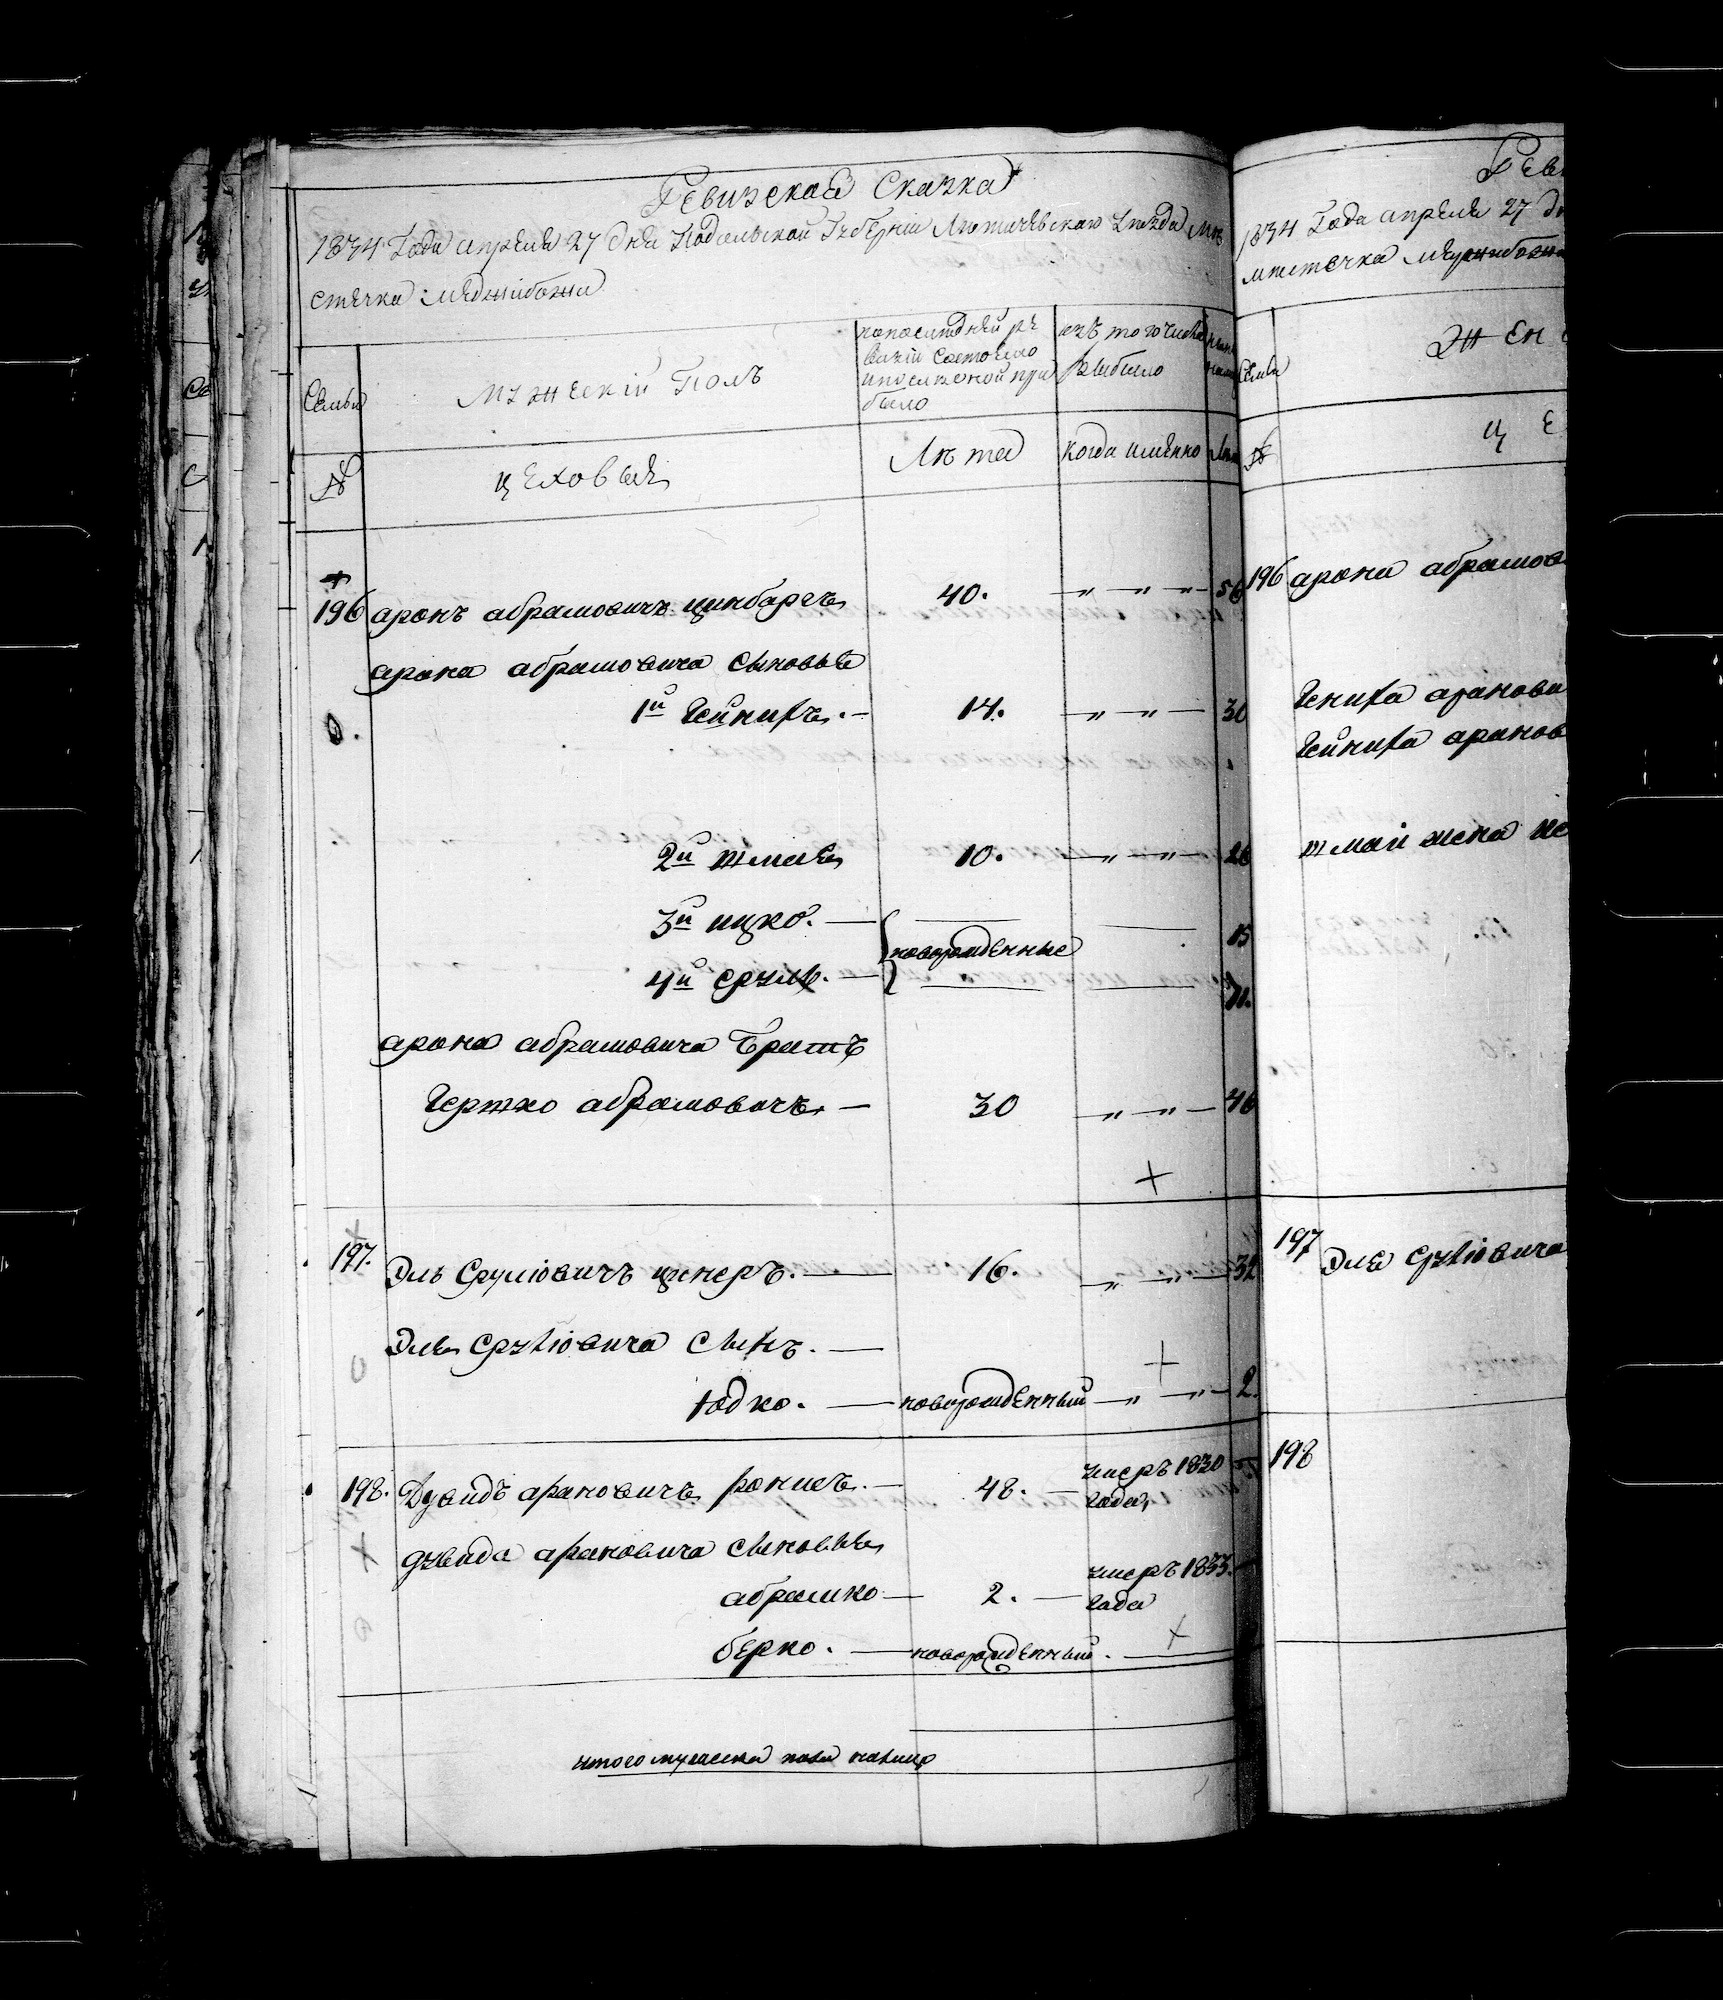 Ревизская Сказка
1834 Года апреля 27 дня Подольской Губерніи Летичевскаго Уезда Мѣ
стечка Меджибожа
Семьи
Мужескій Полъ
по последней ре
визіи состояло
и после оной при
было
изъ того числа
выбыло
№
цеховые
Лѣта
Когда именно
Лета
196 аронъ абрамовичъ цинбаргъ 40. „ „ „ 56
арона абрамовича сыновья
1й Гейнихъ. 14. „ „ 30
2й шмиль 10. „ „ 26
3й ицко. 15
новорожденные
4й сруль. 11.
арона абрамовича братъ
Гершко абрамовичъ 30 „ „ 46
197. Эль Срулiовичъ 16. „ „ 32
Эля Срулiовича сынъ.
Юдко. новорожденный „ „ 2.
198. Дувидъ ароновичъ 48. умеръ 1830
Года
Дувида ароновича сыновья
абрамко 2. умеръ 1833.
Года
берко. новорожденный.
итого мужеска пола налицо
Реви
1834 Года апреля 27 дн
местечка Меджибожа
Семьи
Жен
№
Це
196 арона абрамов
Гениха аронови
Гейниха аронов
шмаи жена
197 Эля Срулiовича
198